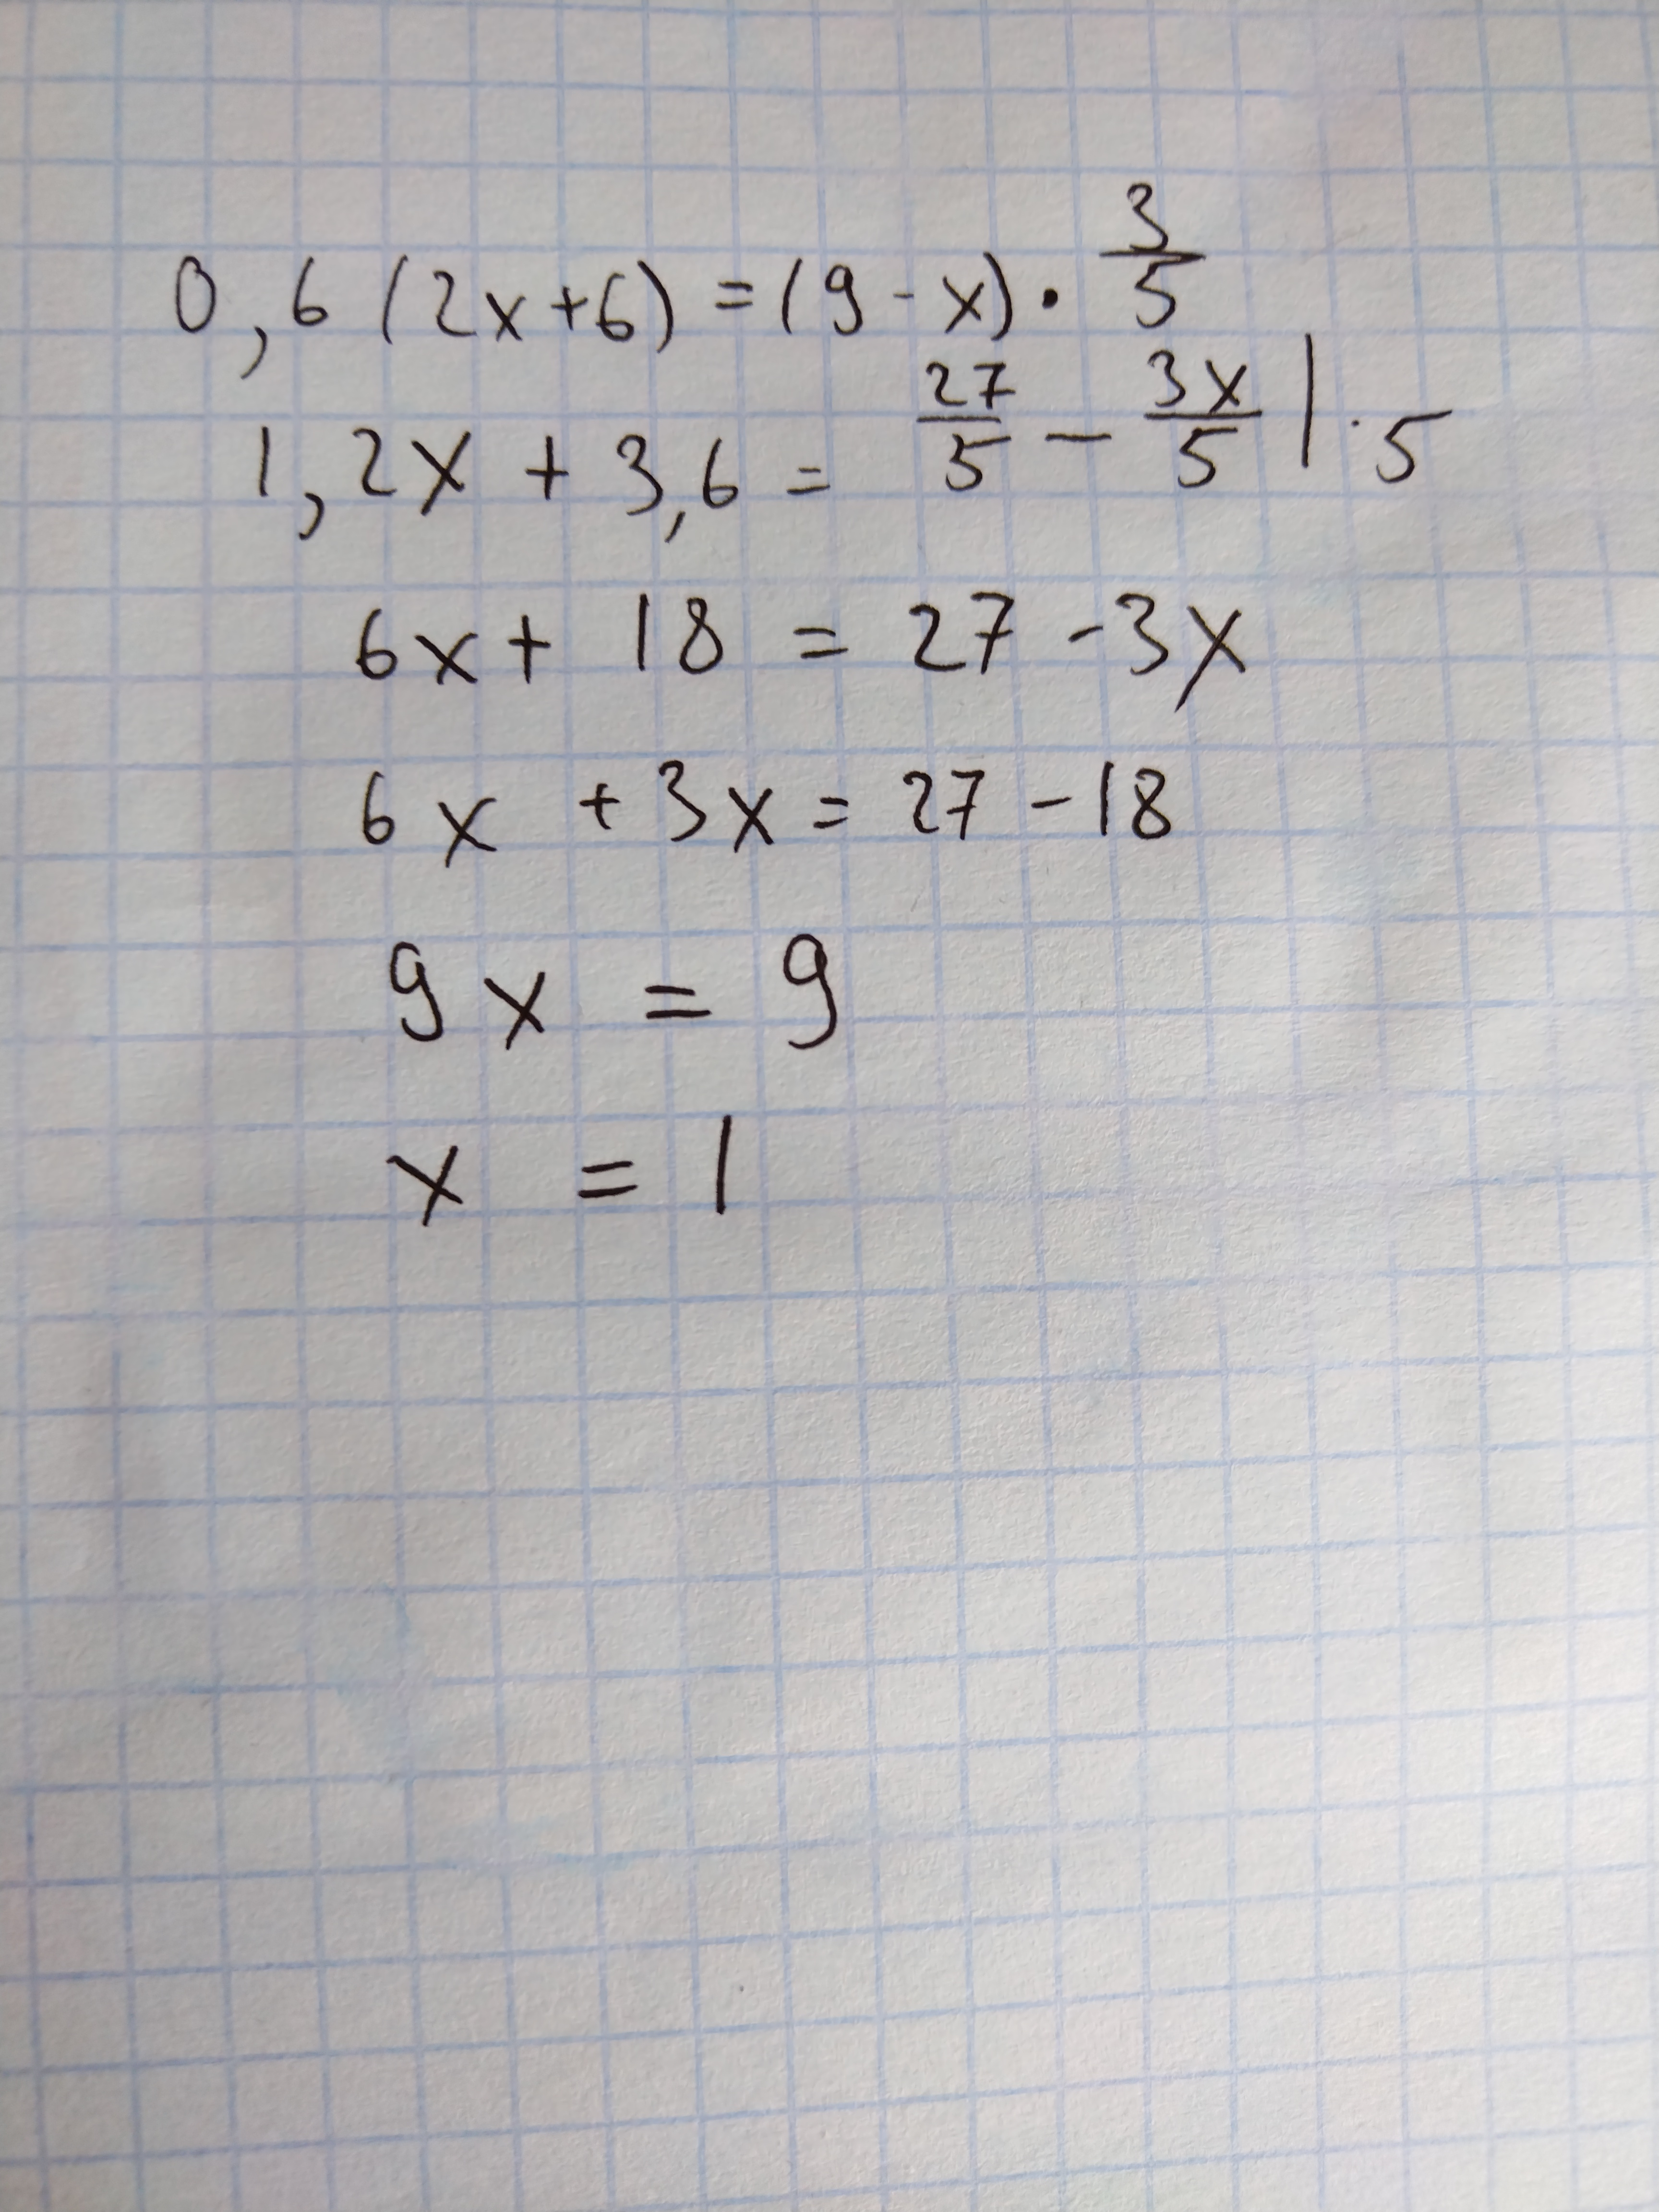 0,6(2x+6)=(9-x)·3/5
1,2x+3,6=27/5-3x/5|·5
6x+18=27-3x
6x+3x=27-18
9x=9
x=1